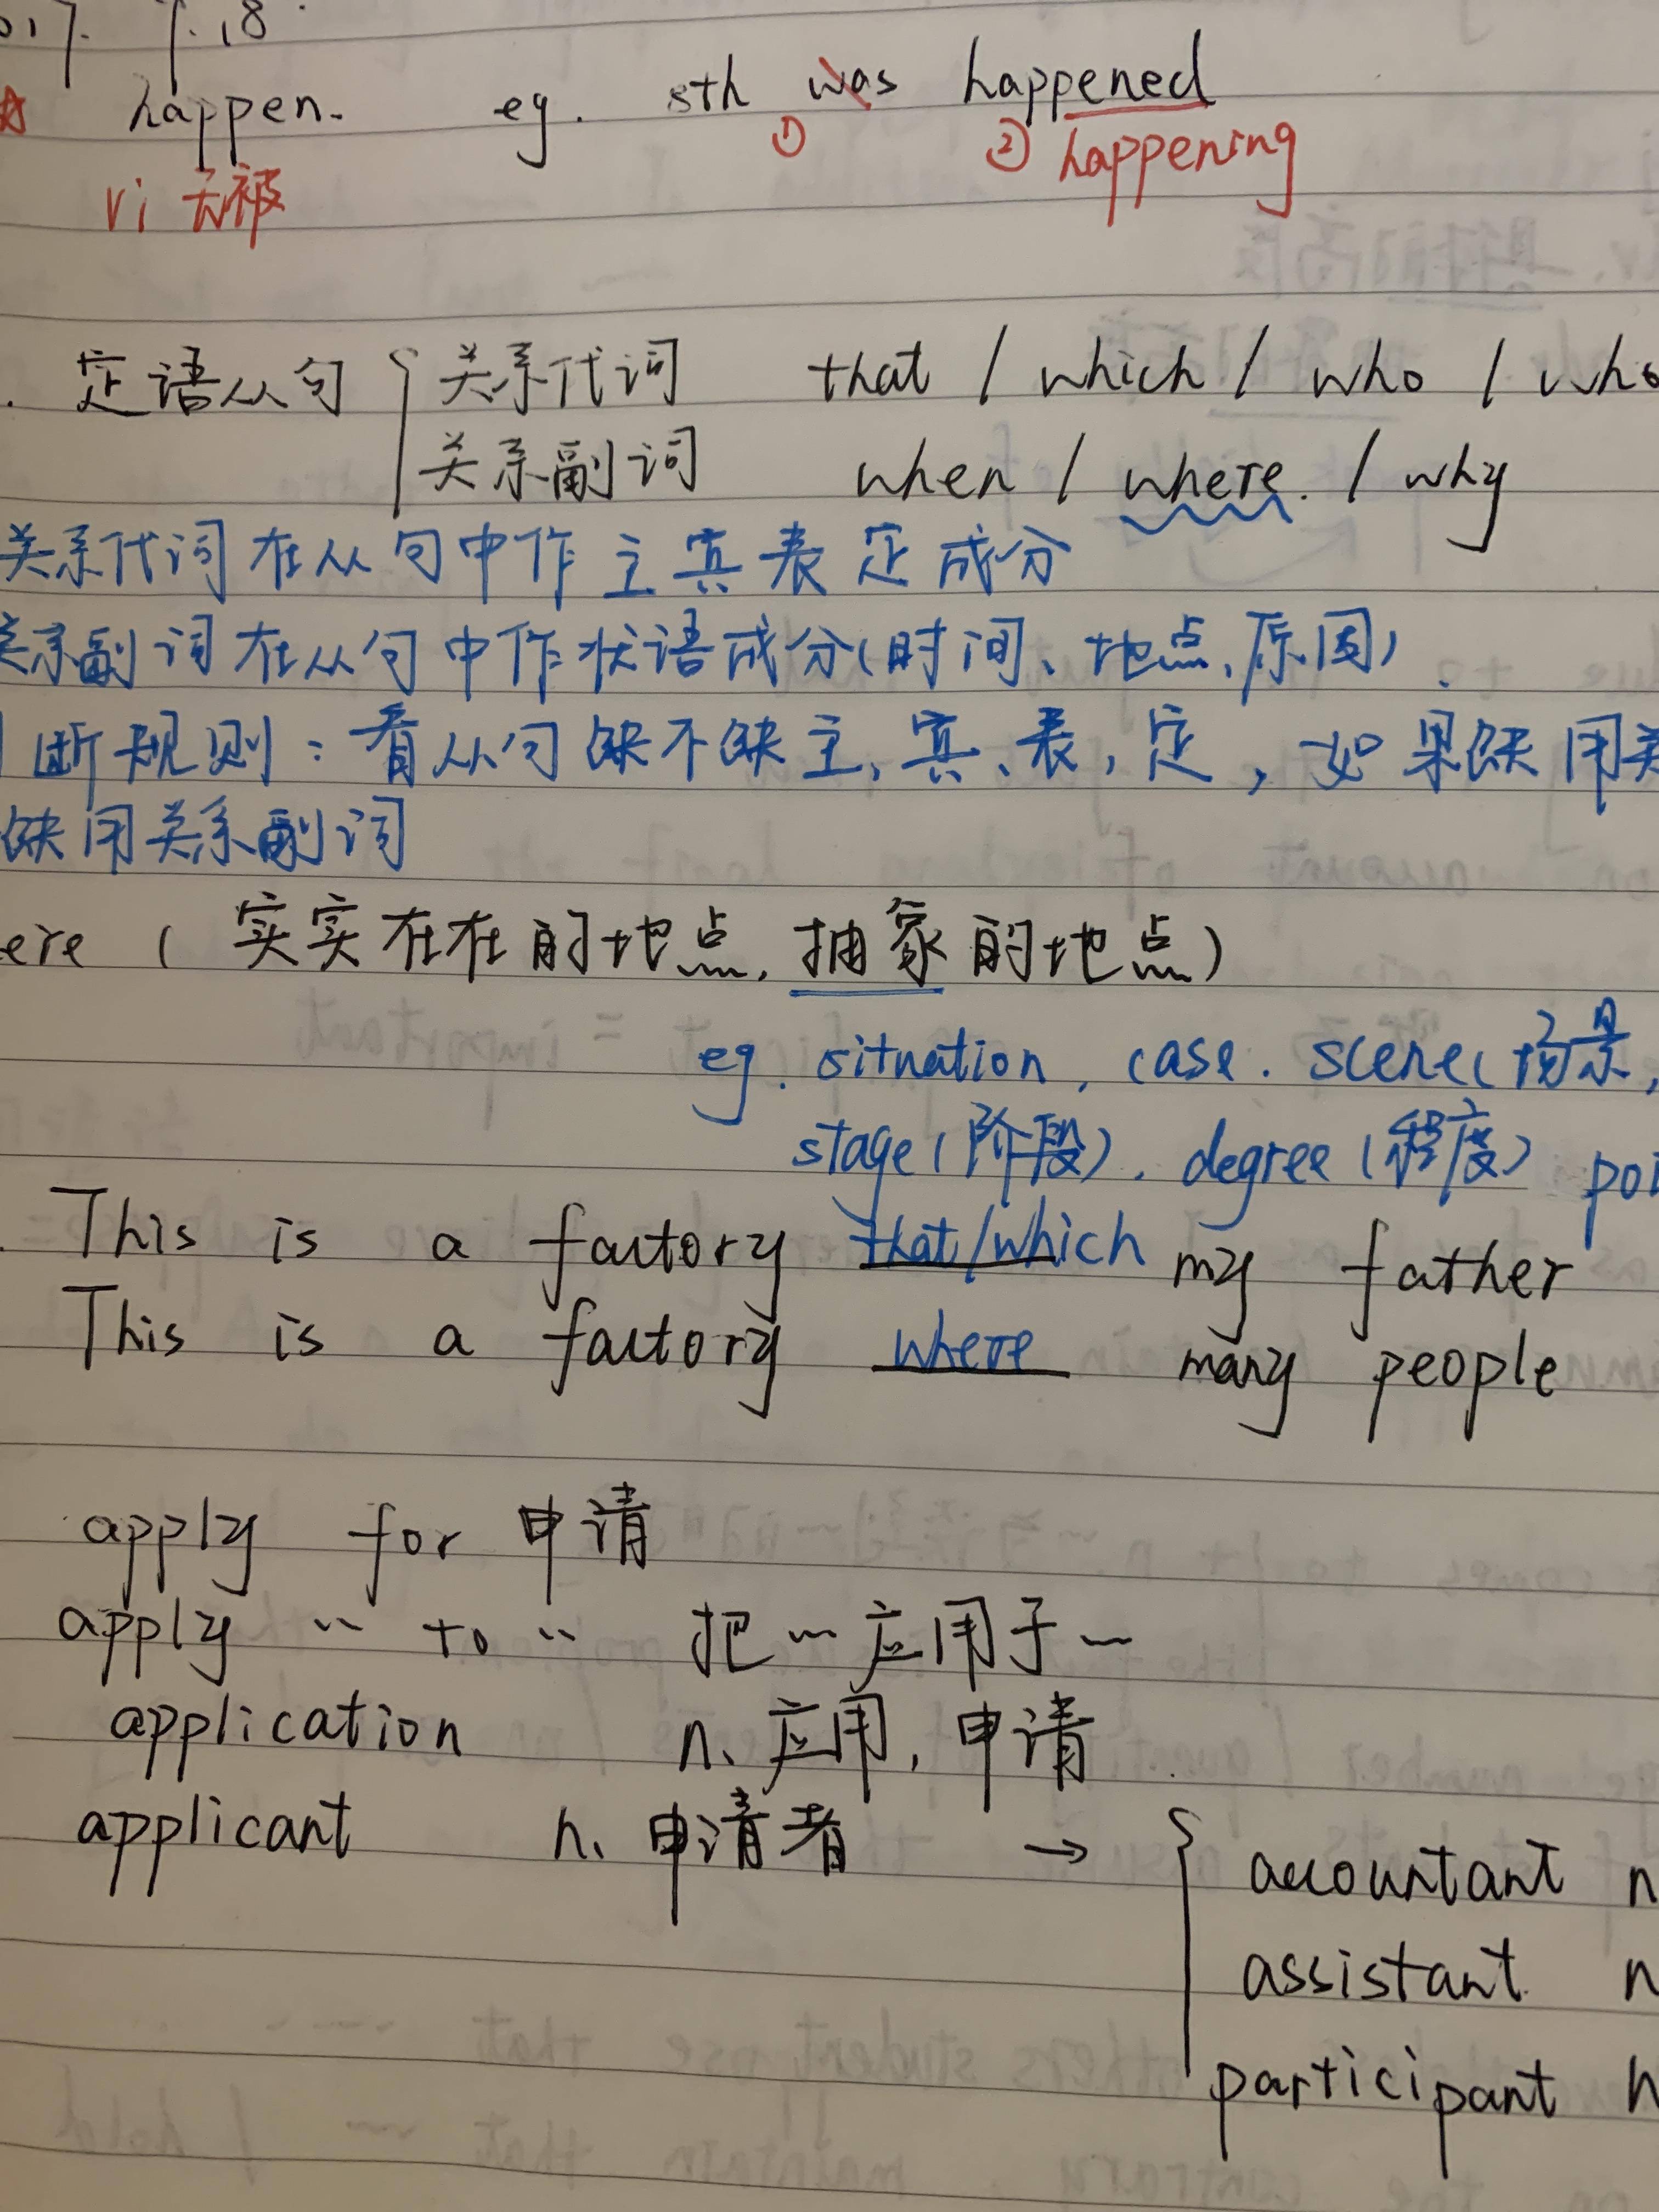 7.18
happen. eg. sth was happened
① ② happening
vi 无被
定语从句 { 关系代词 that / which / who /
关系副词 when / where. / why
关系代词在从句中作主宾表定成分
关系副词在从句中作状语成分(时间、地点、原因)
断规则:看从句缺不缺主、宾、表,定,如果缺用关
缺用关系副词
ere (实实在在的地点,抽象的地点)
eg. situation, case. scene(场景,
stage(阶段). degree(程度) poi
This is a factory that/which my father
This is a factory where many people
apply for 申请
apply … to … 把…应用于…
application n. 应用,申请
applicant n. 申请者 → { accountant n
assistant n
participant n